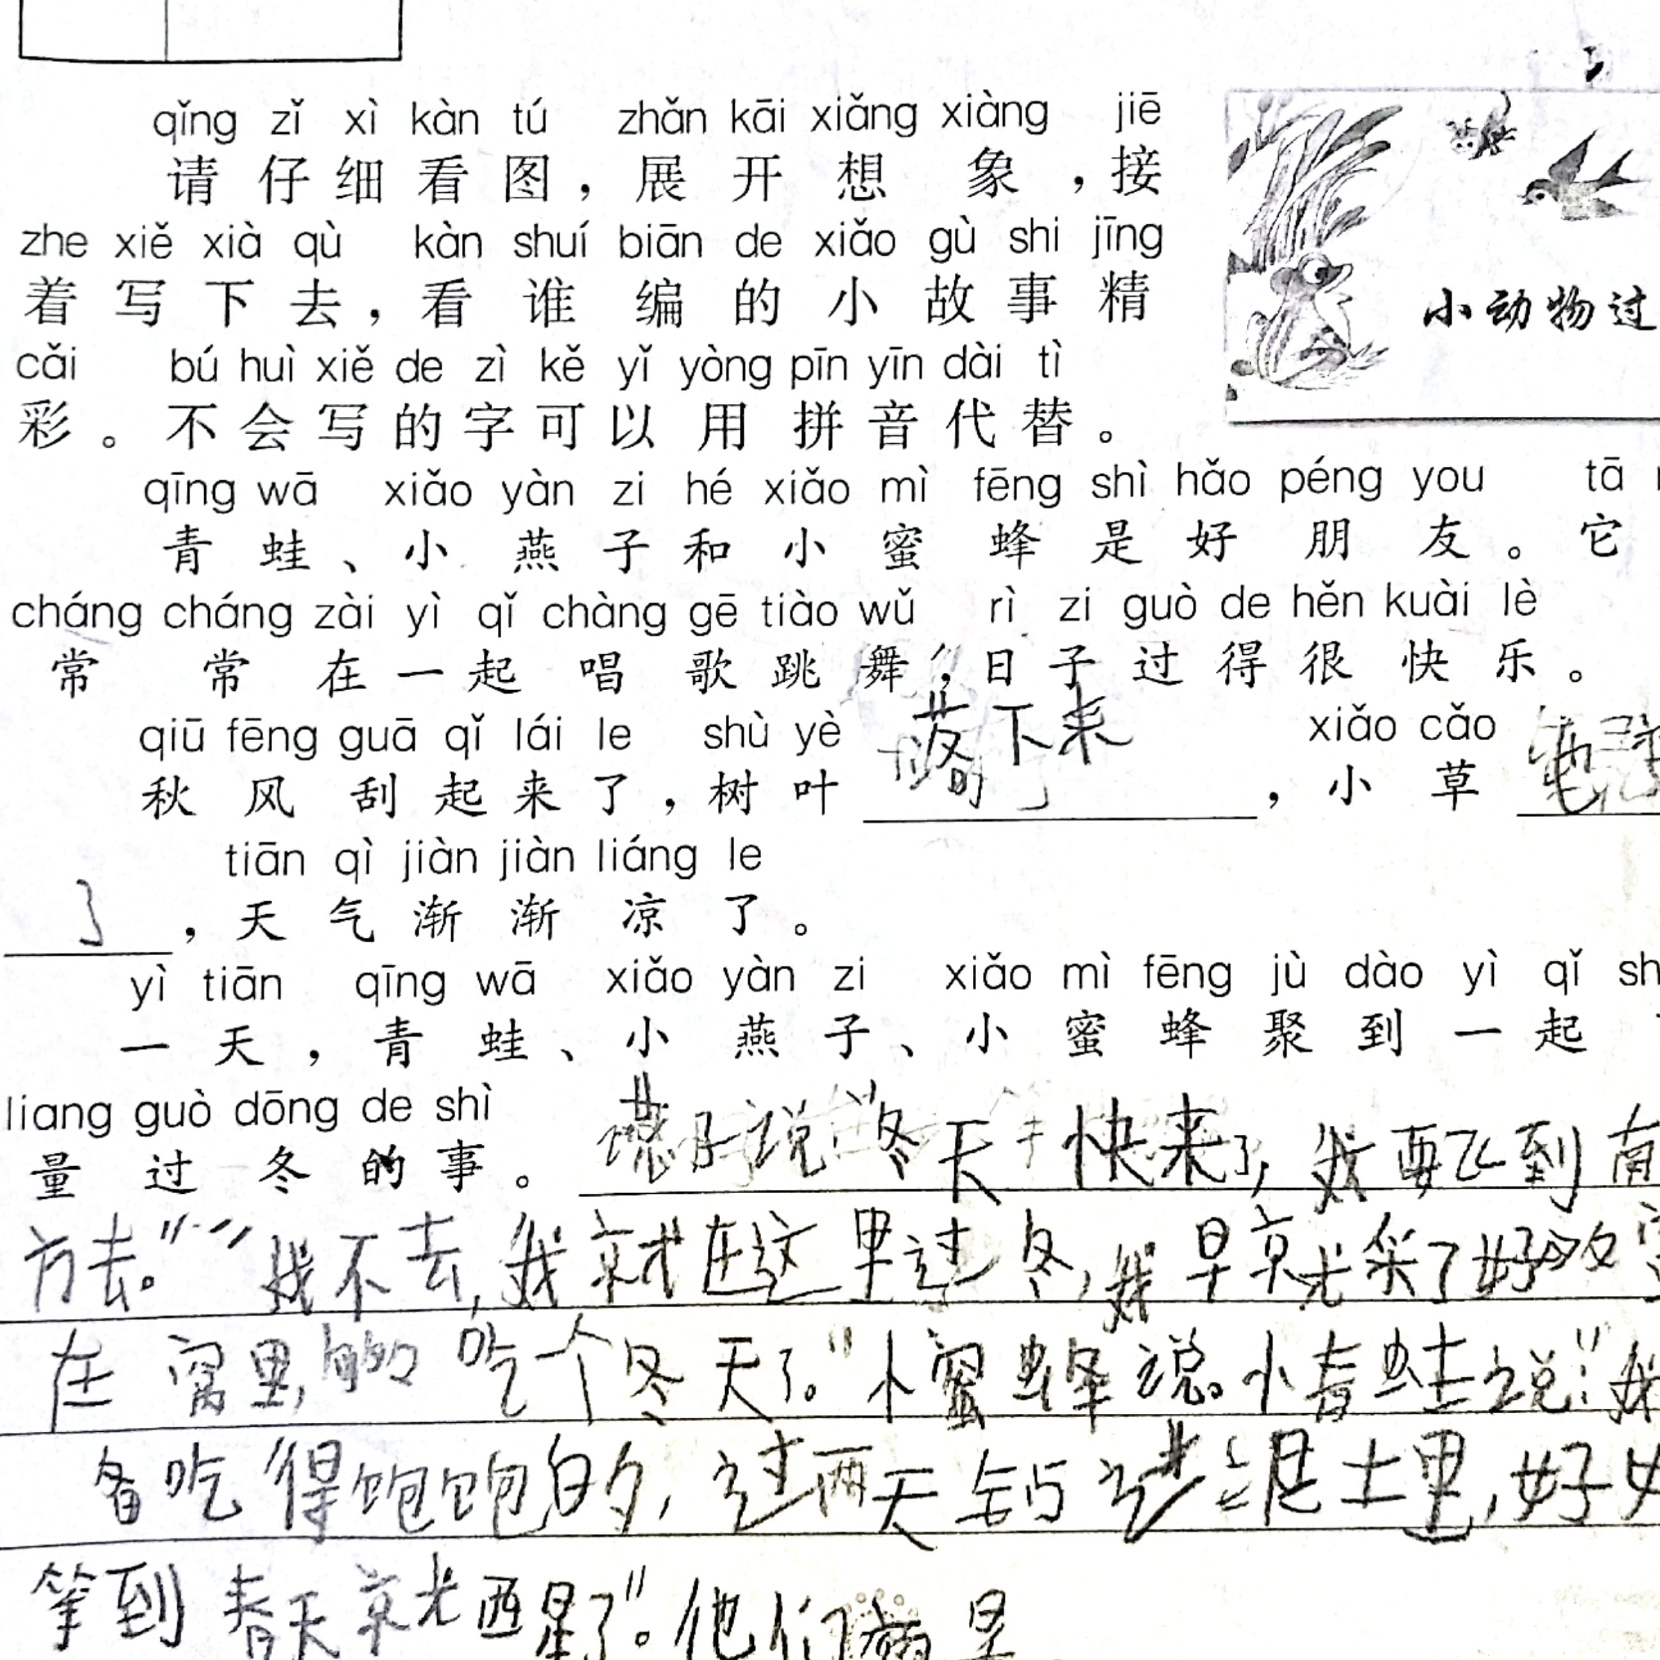 qǐng zǐ xì kàn tú zhǎn kāi xiǎng xiàng jiē
请仔细看图，展开想象，接
zhe xiě xià qù kàn shuí biān de xiǎo gù shi jīng
着写下去，看谁编的小故事精
cǎi bú huì xiě de zì kě yǐ yòng pīn yīn dài tì
彩。不会写的字可以用拼音代替。
小动物过
qīng wā xiǎo yàn zi hé xiǎo mì fēng shì hǎo péng you tā
青蛙、小燕子和小蜜蜂是好朋友。它
cháng cháng zài yì qǐ chàng gē tiào wǔ rì zi guò de hěn kuài lè
常常在一起唱歌跳舞，日子过得很快乐。
qiū fēng guā qǐ lái le shù yè xiǎo cǎo
秋风刮起来了，树叶落下来，小草
tiān qì jiàn jiàn liáng le
了，天气渐渐凉了。
yì tiān qīng wā xiǎo yàn zi xiǎo mì fēng jù dào yì qǐ
一天，青蛙、小燕子、小蜜蜂聚到一起
liang guò dōng de shì
量过冬的事。子说"冬天快来了，我要飞到南
方去。""我不去，我就在这里过冬，我早就采了好多
在窝里，够吃个冬天了。"小蜜蜂说。小青蛙说："我
备吃得饱饱的，过两天钻进泥土里，好
等到春天就醒了"。他们